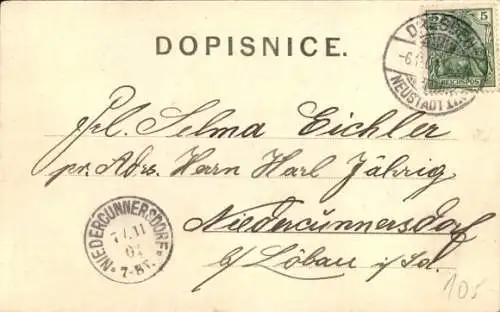 DOPISNICE.
DRESDEN
-6.11
NEUSTADT
5
REICHSPOST
Frl. Selma Eichler
pr. Adrs. Herrn Karl Jährig
Niedercunnersdorf
b/ Löbau i/Sa.
NIEDERCUNNERSDORF
7/.11
7-8V.
105